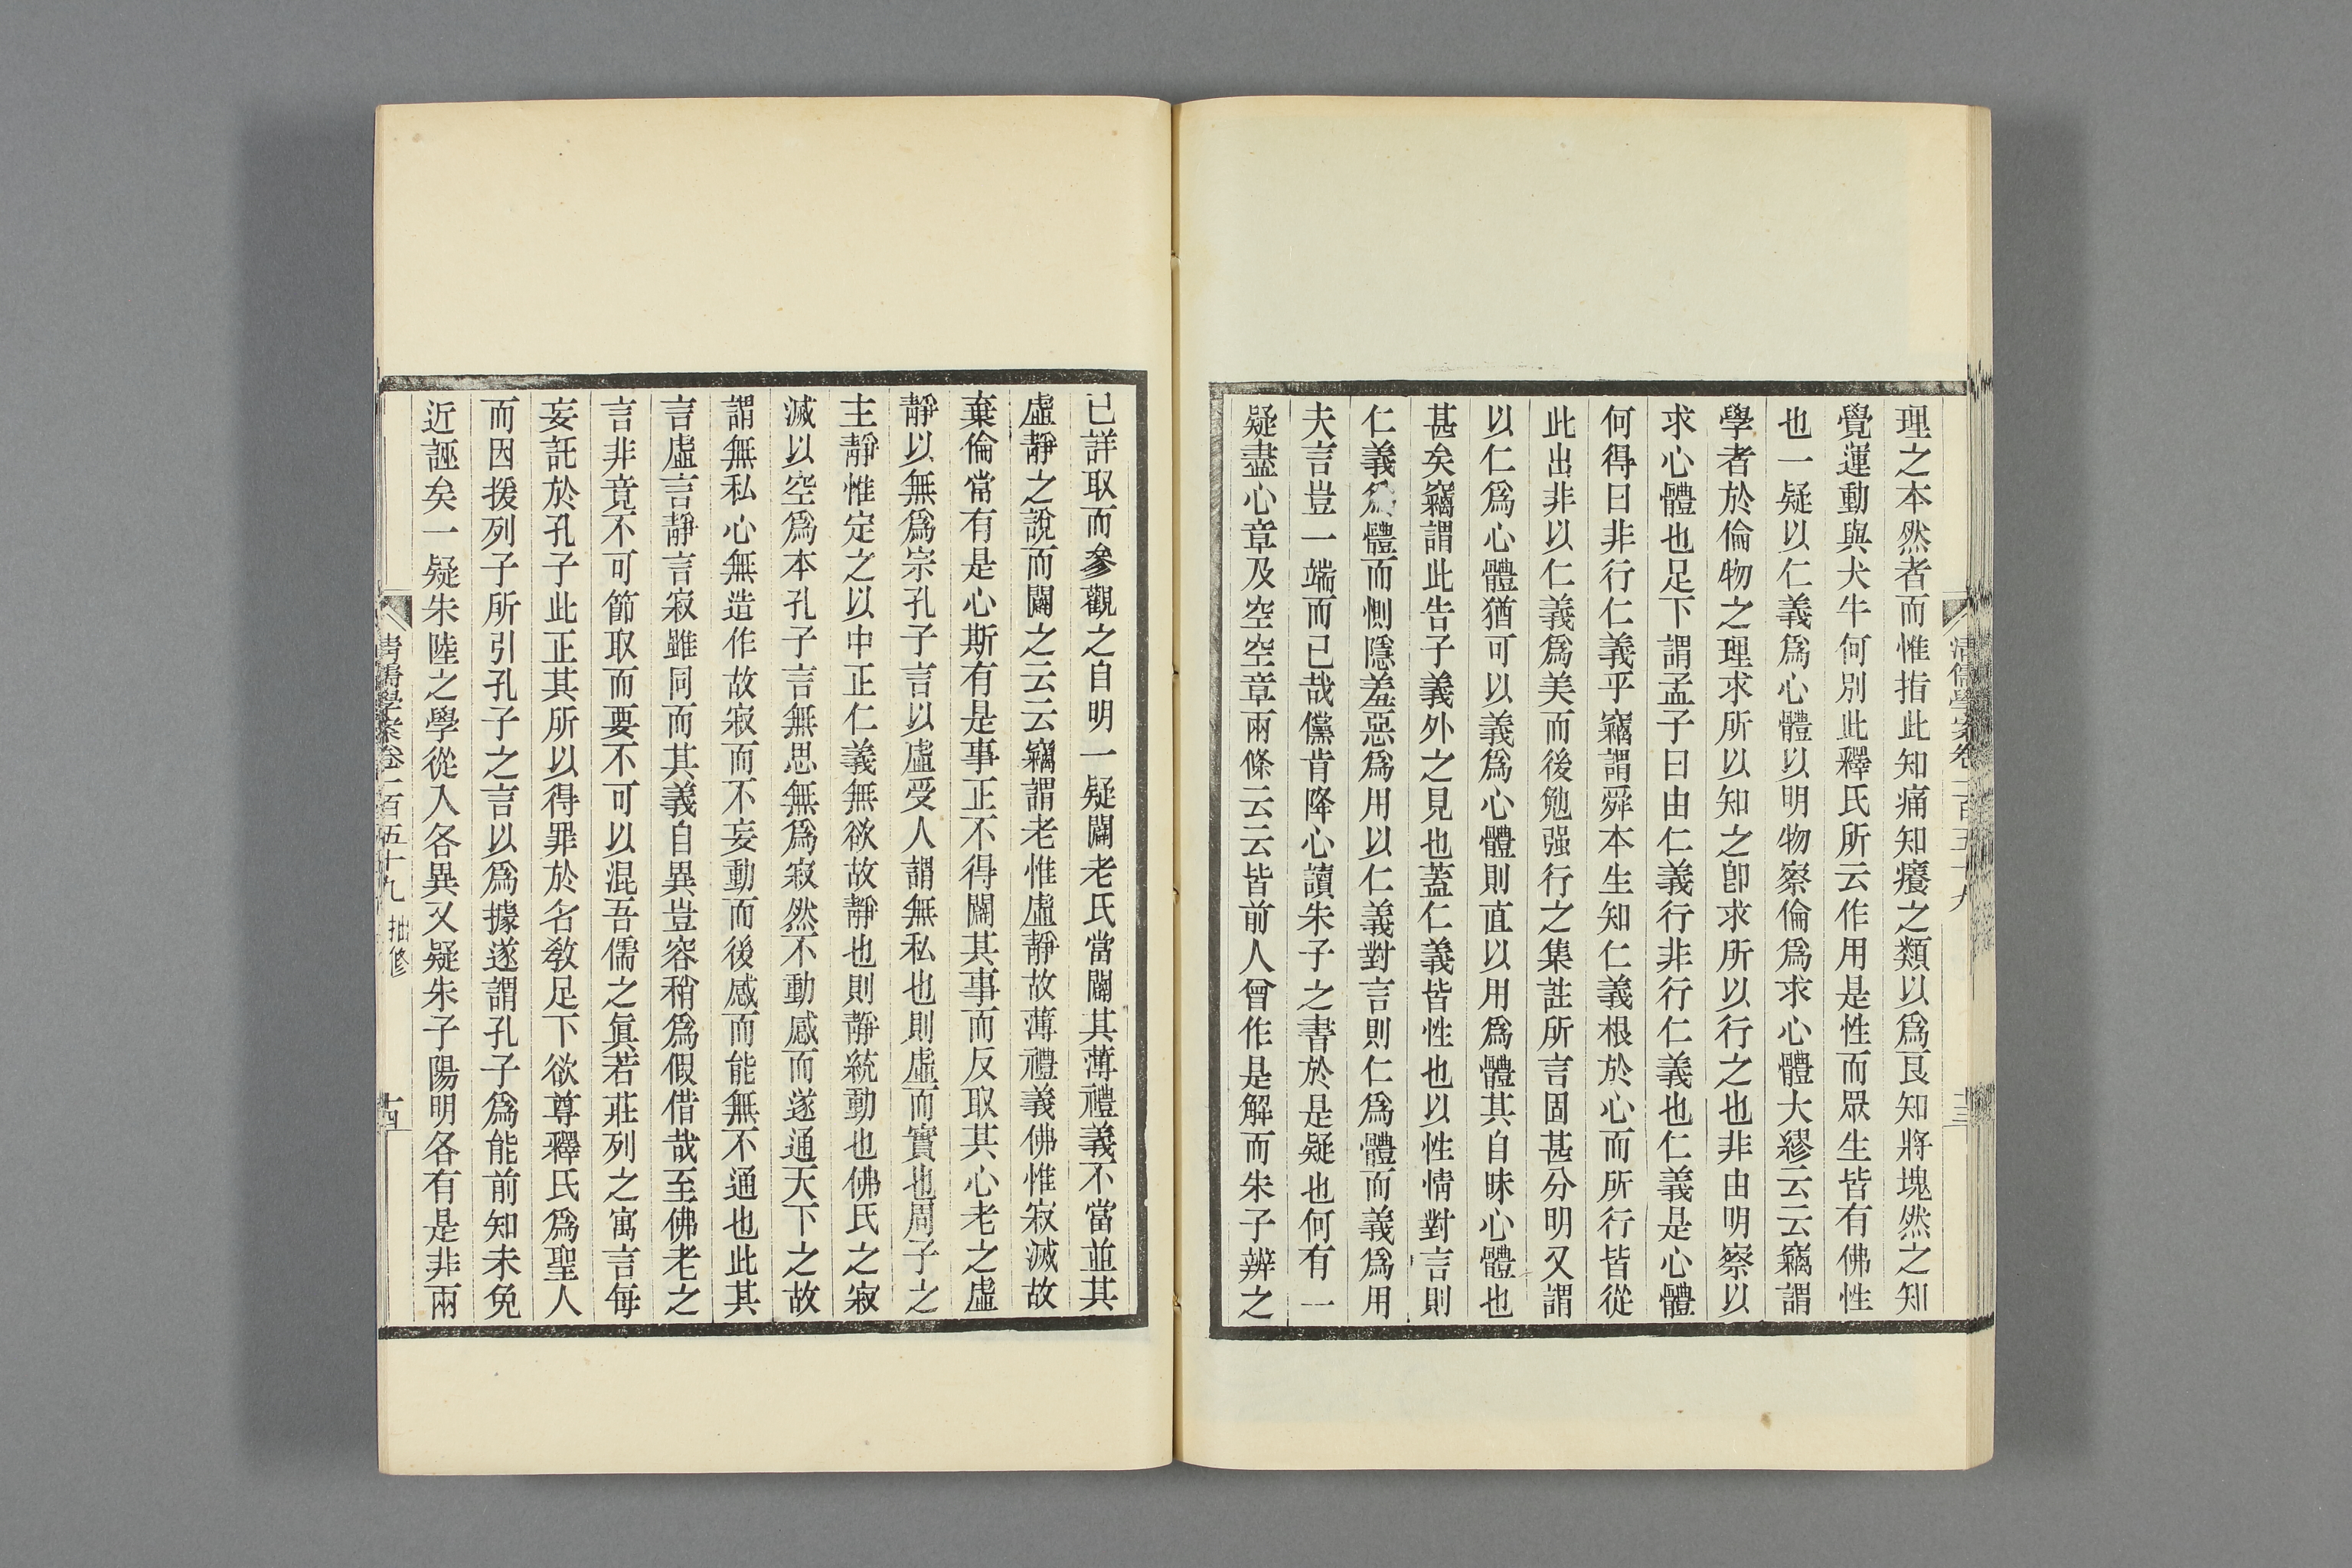 理之本然者而惟指此知痛知癢之類以爲良知將塊然之知
覺運動與犬牛何別此釋氏所云作用是性而眾生皆有佛性
也一疑以仁義爲心體以明物察倫爲求心體大繆云云竊謂
學者於倫物之理求所以知之卽求所以行之也非由明察以
求心體也足下謂孟子曰由仁義行非行仁義也仁義是心體
何得曰非行仁義乎竊謂舜本生知仁義根於心而所行皆從
此出非以仁義爲美而後勉强行之集註所言固甚分明又謂
以仁爲心體猶可以義爲心體則直以用爲體其自昧心體也
甚矣竊謂此告子義外之見也蓋仁義皆性也以性情對言則
仁義爲體而惻隱羞惡爲用以仁義對言則仁爲體而義爲用
夫言豈一端而已哉儻肯降心讀朱子之書於是疑也何有一
疑盡心章及空空章兩條云云皆前人曾作是解而朱子辨之
清儒學案卷一百五十九
十三
已詳取而參觀之自明一疑闢老氏當闢其薄禮義不當並其
虛靜之說而闢之云云竊謂老惟虛靜故薄禮義佛惟寂滅故
棄倫常有是心斯有是事正不得闢其事而反取其心老之虛
靜以無爲宗孔子言以虛受人謂無私也則虛而實也周子之
主靜惟定之以中正仁義無欲故靜也則靜統動也佛氏之寂
滅以空爲本孔子言無思無爲寂然不動感而遂通天下之故
謂無私心無造作故寂而不妄動而後感而能無不通也此其
言虛言靜言寂雖同而其義自異豈容稍爲假借哉至佛老之
言非竟不可節取而要不可以混吾儒之眞若莊列之寓言每
妄託於孔子此正其所以得罪於名教足下欲尊釋氏爲聖人
而因援列子所引孔子之言以爲據遂謂孔子爲能前知未免
近誣矣一疑朱陸之學從入各異又疑朱子陽明各有是非兩
清儒學案卷一百五十九 抽修
十四